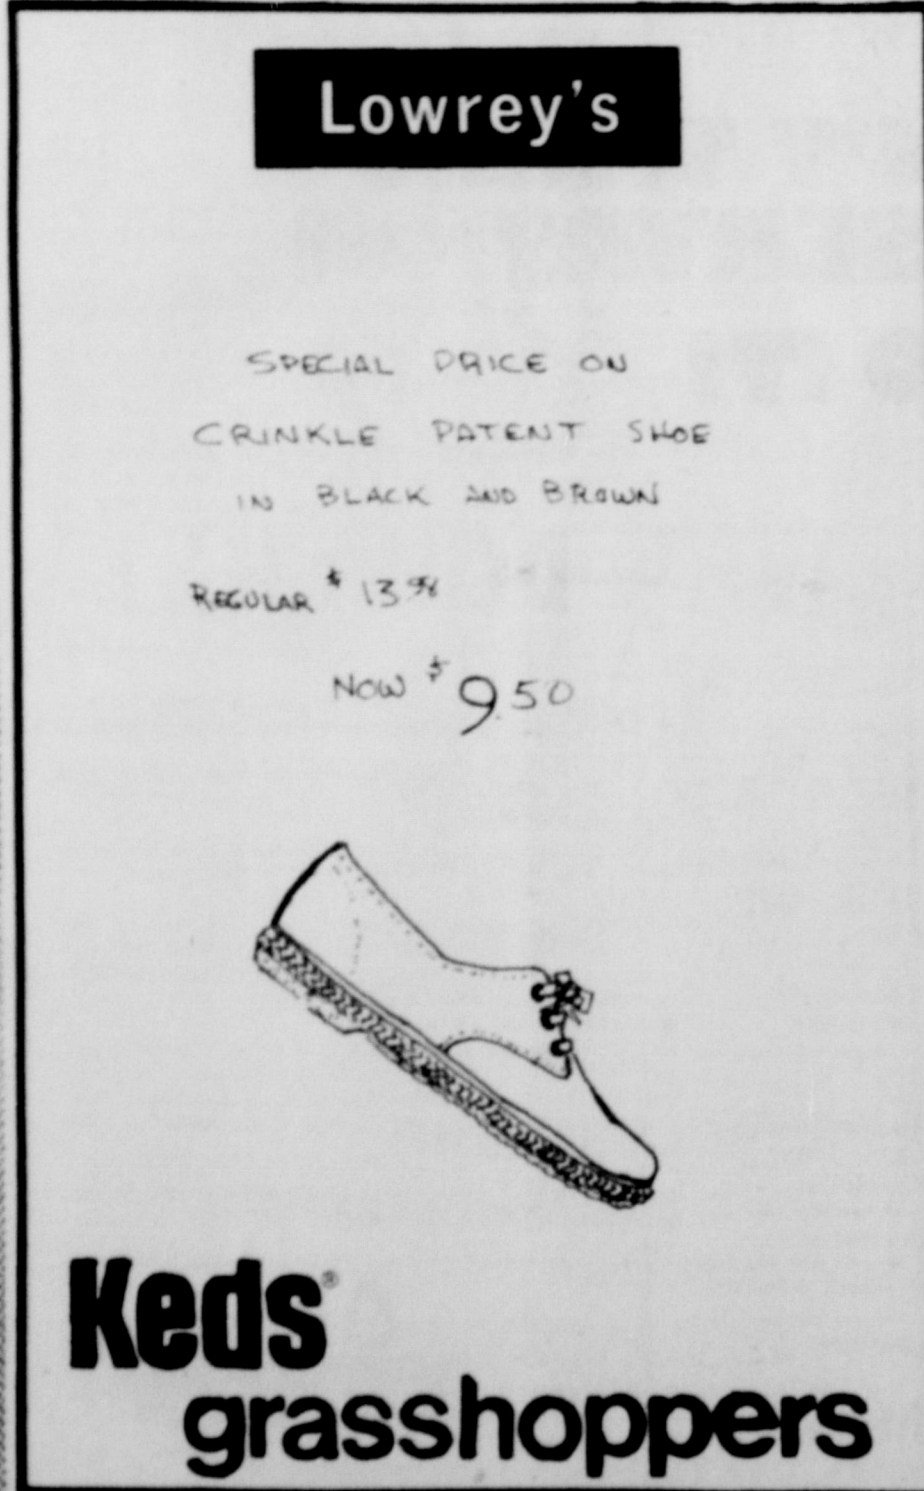 Lowrey's
SPECIAL PRICE ON
CRINKLE PATENT SHOE
IN BLACK AND BROWN
REGULAR $ 13 98
NOW $ 9.50
Keds®
grasshoppers